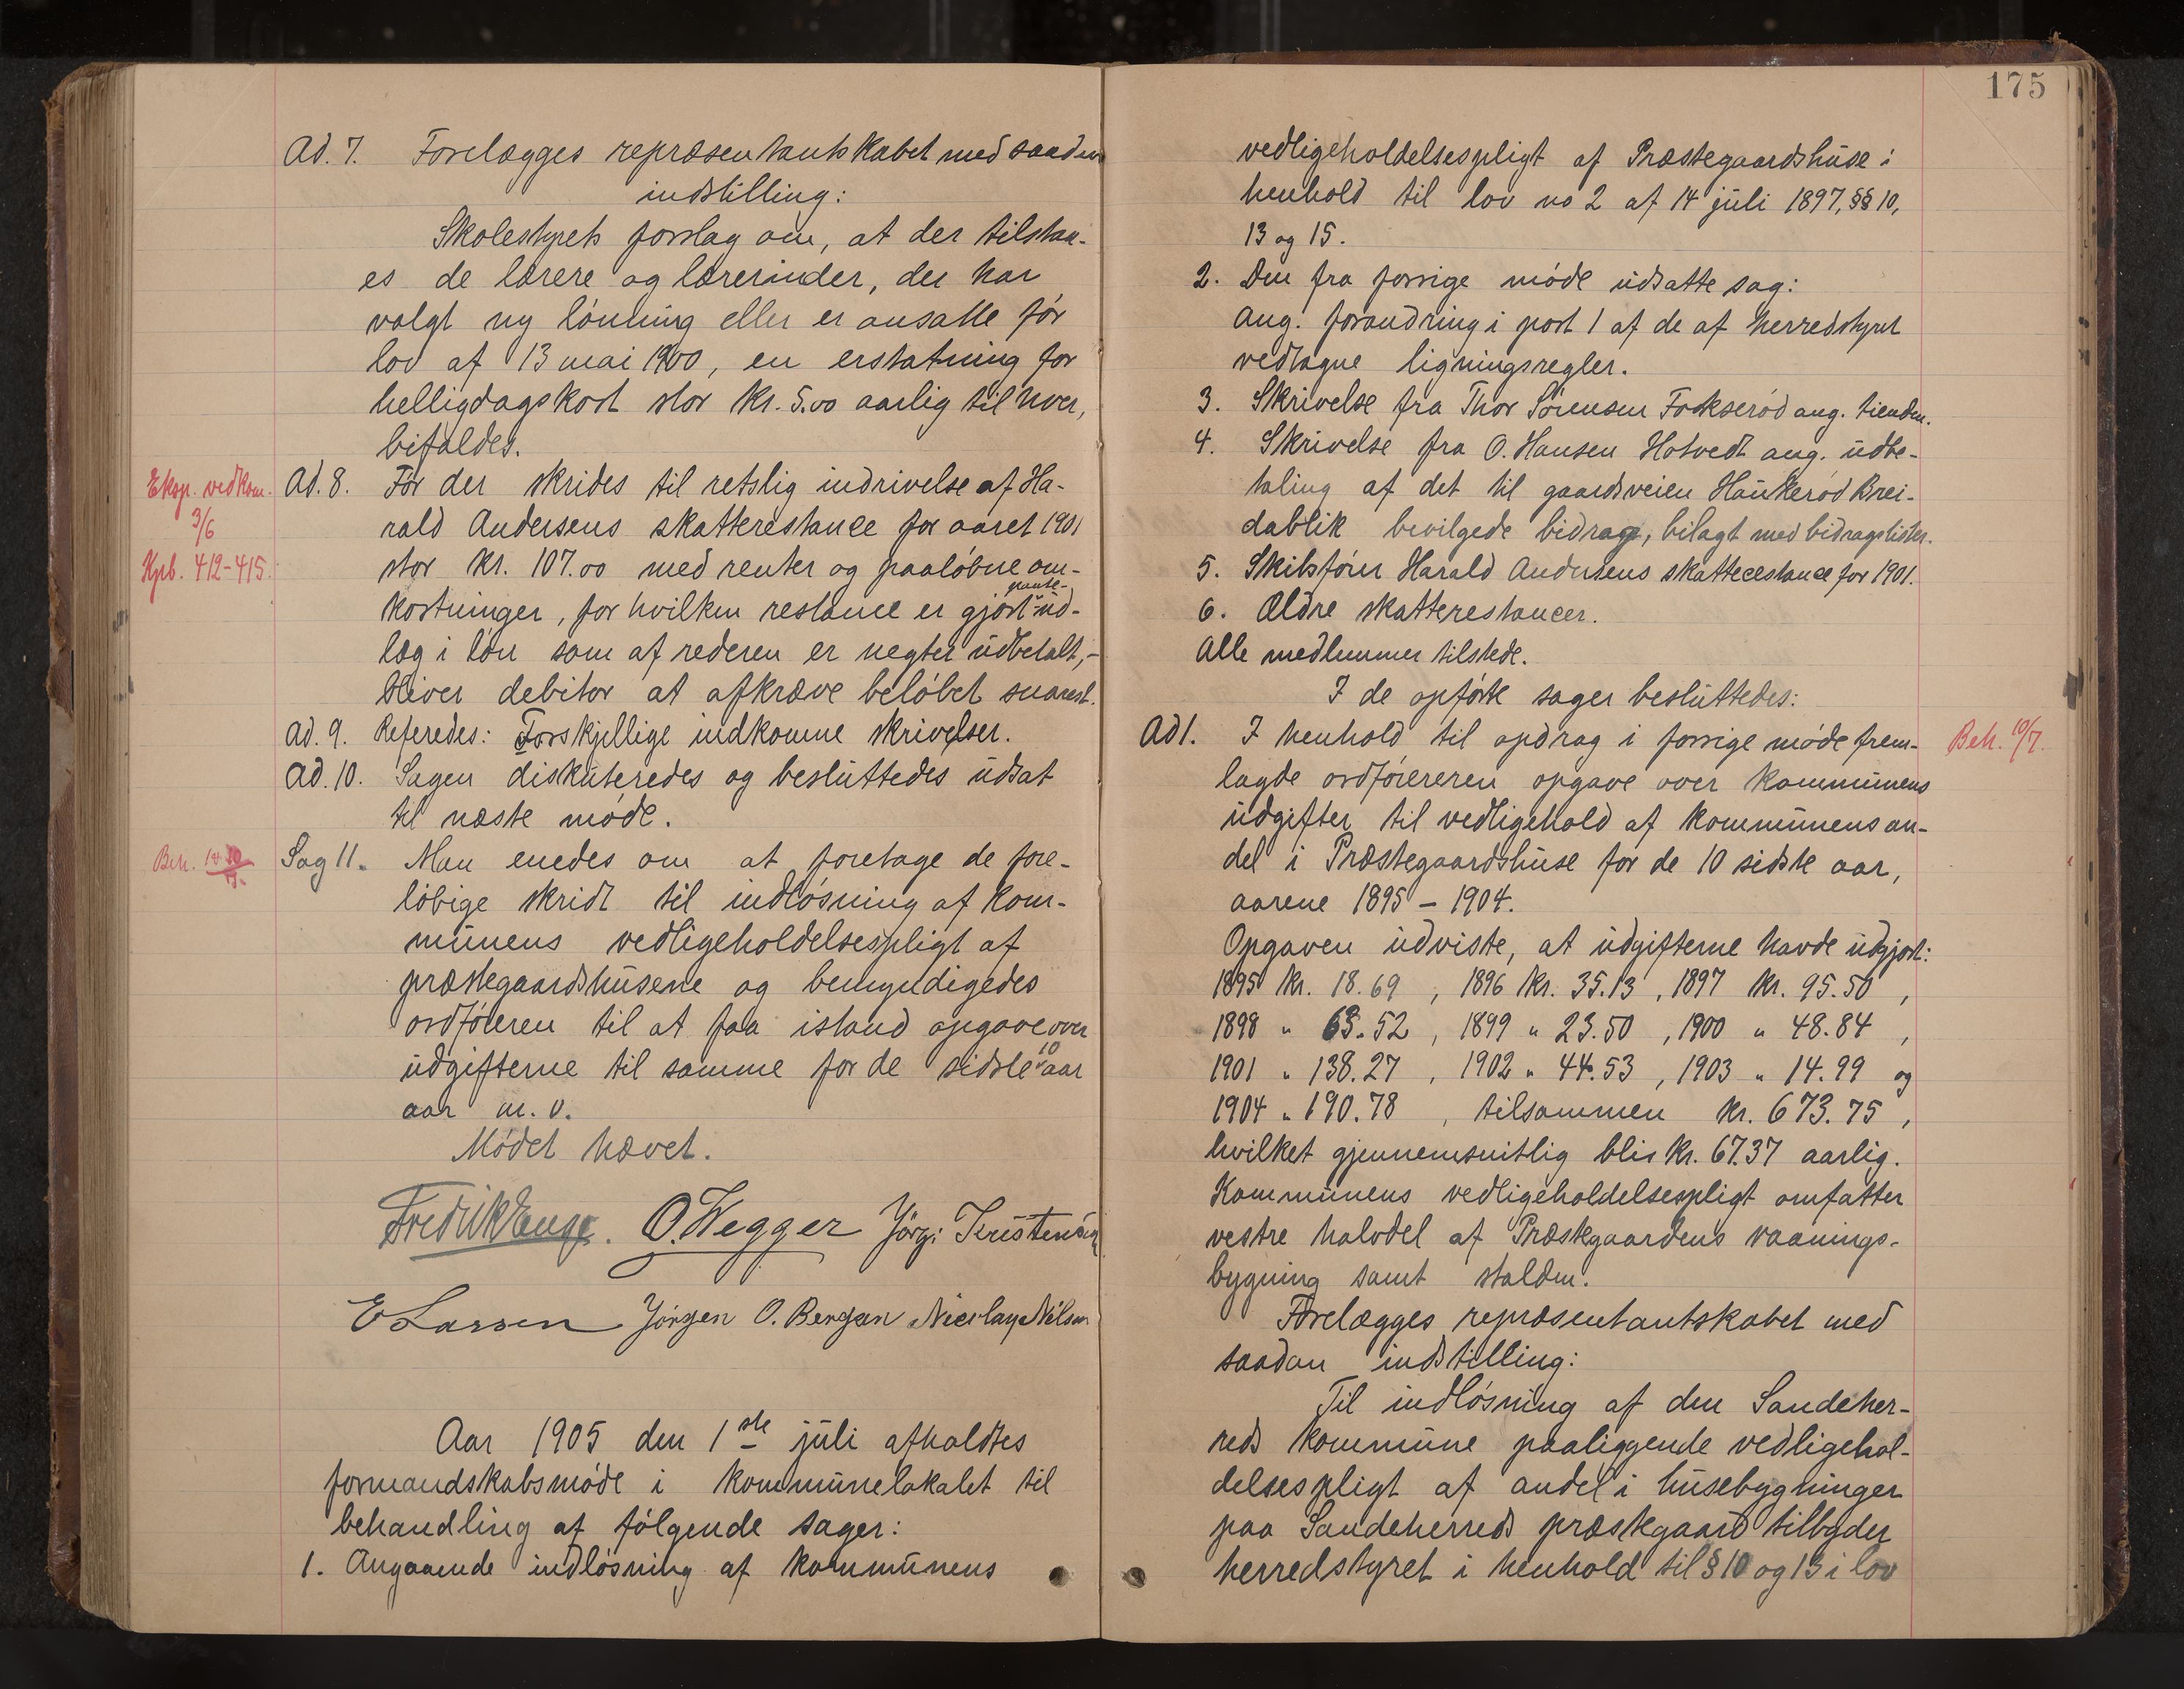 Ad. 7. Forelægges repræsentantskabet med saadan
indstilling:
Skolestyrets forslag om, at der tilstaa-
es de lærere og lærerinder, der har
valgt ny lønning eller er ansatte før
lov af 13 mai 1900, en erstatning for
helligdagskost stor kr. 5.00 aarlig til hver,
bifaldes.
Eksp. vedkom.
3/6
Kpb. 412-415.
Ad. 8. Før der skrides til retslig indrivelse af Ha-
rald Andersens skatterestance for aaret 1901
stor kr. 107.00 med renter og paaløbne om-
kostninger, for hvilken restance er gjort pante-ud-
læg i løn som af rederen er negtet udbetalt,-
bliver debitor at afkræve beløbet snarest.
Ad. 9. Referedes: Forskjellige indkomne skrivelser.
Ad. 10. Sagen diskuteredes og besluttedes udsat
til næste møde.
Beh.
Sag 11. Man enedes om at foretage de fore-
løbige skridt til indløsning af kom-
munens vedligeholdelsespligt af
præstegaardshusene og bemyndigedes
ordføreren til at faa istand opgave over
udgifterne til samme for de sidste 10 aar
aar m. v.
Mødet hævet.
Fredrik Enge. O. Wegger Jørg. Kristensen
E Larsen Jørgen O. Bergan Nicolay Nilsen
Aar 1905 den 1ste juli afholdtes
formandskabsmøde i kommunelokalet til
behandling af følgende sager:
1. Angaaende indløsning af kommunens
175
vedligeholdelsespligt af Præstegaardshuse i
henhold til lov no 2 af 14 juli 1897, §§ 10,
13 og 15.
2. Den fra forrige møde udsatte sag:
ang. forandring i post 1 af de af herredstyret
vedtagne ligningsregler.
3. Skrivelse fra Thor Sørensen Fokserød ang. tienden.
4. Skrivelse fra O. Hansen Hotvedt ang. udbe-
taling af det til gaardsveien Haukerød Brei-
dablik bevilgede bidrag, bilagt med bidragslister.
5. Skibsfører Harald Andersens skatterestance for 1901.
6. Ældre skatterestancer.
Alle medlemmer tilstede.
I de opførte sager besluttedes:
Ad 1. I henhold til opdrag i forrige møde frem-
Beh. 10/7.
lagde ordføreren opgave over kommunens
udgifter til vedligehold af kommunens an-
del i Præstegaardshuse for de 10 sidste aar,
aarene 1895 - 1904.
Opgaven udviste, at udgifterne havde udgjort:
1895 kr. 18.69, 1896 kr. 35.13, 1897 kr. 95.50,
1898 " 63.52, 1899 " 23.50, 1900 " 48.84,
1901 " 138.27, 1902 " 44.53, 1903 " 14.99 og
1904 " 190.78, tilsammen kr. 673.75,
hvilket gjennemsnitlig blir kr. 67.37 aarlig.
Kommunens vedligeholdelsespligt omfatter
vestre halvdel af Præstegaardens vaanings-
bygning samt stalden.
Forelægges repræsentantskabet med
saadan indstilling:
Til indløsning af den Sandeher-
reds kommune paaliggende vedligehol-
delsespligt af andel i husebygninger
paa Sandeherreds præstegaard tilbyder
herredstyret i henhold til § 10 og 13 i lov